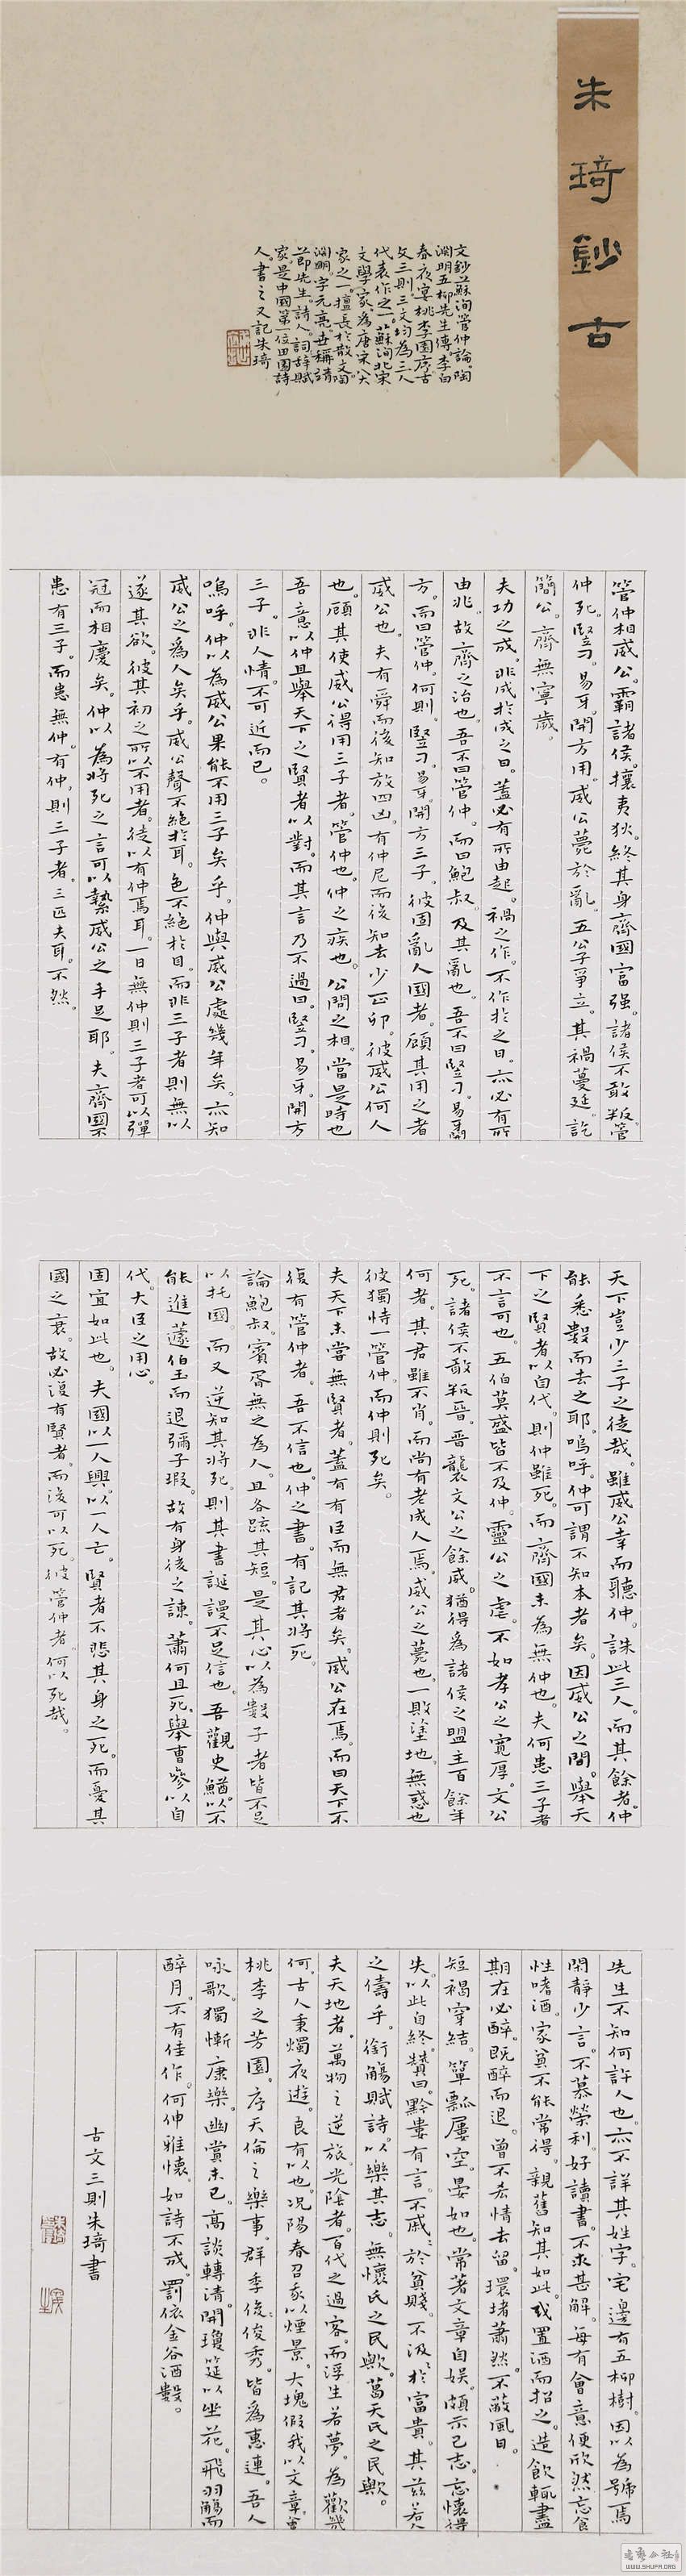 朱琦鈔古
文鈔蘇洵管仲論。陶
淵明五柳先生傳。李白
春夜宴桃李園序古
文三則三文均為三人
代表作之一。蘇洵北宋
文學家。為唐宋八大
家之一。擅長於散文。陶
淵明。字元亮。世稱靖
節先生。詩人。詞辭賦
家。是中國第一位田園詩
人。書之又記朱琦
管仲相威公。霸諸侯。攘夷狄。終其身齊國富强。諸侯不敢叛。管
仲死。豎刁。易牙。開方用。威公薨於亂。五公子爭立。其禍蔓延。訖
簡公。齊無寧歲。
夫功之成。非成於成之日。蓋必有所由起。禍之作。不作於之日。亦必有所
由兆。故齊之治也。吾不曰管仲。而曰鮑叔。及其亂也。吾不曰豎刁。易牙。開
方。而曰管仲。何則。豎刁。易牙。開方三子。彼固亂人國者。顧其用之者
威公也。夫有舜而後知放四凶。有仲尼而後知去少正卯。彼威公何人
也。顧其使威公得用三子者。管仲也。仲之疾也。公問之相。當是時也
吾意以仲且舉天下之賢者以對。而其言乃不過曰。豎刁。易牙。開方
三子。非人情。不可近而已。
嗚呼。仲以為威公果能不用三子矣乎。仲與威公處幾年矣。亦知
威公之為人矣乎。威公聲不絕於耳。色不絕於目。而非三子者則無以
遂其欲。彼其初之所以不用者。徒以有仲焉耳。一日無仲則三子者可以彈
冠而相慶矣。仲以為將死之言可以縶威公之手足耶。夫齊國不
患有三子。而患無仲。有仲。則三子者。三匹夫耳。不然。
天下豈少三子之徒哉。雖威公幸而聽仲。誅此三人。而其餘者。仲
能悉數而去之耶。嗚呼。仲可謂不知本者矣。因威公之問。舉天
下之賢者以自代。則仲雖死。而齊國未為無仲也。夫何患三子者
不言可也。五伯莫盛皆不及仲。靈公之虐。不如孝公之寬厚。文公
死。諸侯不敢叛晉。晉襲文公之餘威。猶得為諸侯之盟主百餘年
何者。其君雖不肖。而尚有老成人焉。威公之薨也。一敗塗地。無惑也
彼獨恃一管仲。而仲則死矣。
夫天下未嘗無賢者。蓋有有臣而無君者矣。威公在焉。而曰天下不
復有管仲者。吾不信也。仲之書。有記其將死。
論鮑叔。賓胥無之為人。且各疏其短。是其心以為數子者皆不足
以托國。而又逆知其將死。則其書誕謾不足信也。吾觀史鰌。以不
能進蘧伯玉而退彌子瑕。故有身後之諫。蕭何且死。舉曹參以自
代。大臣之用心。
固宜如此也。夫國以一人興。以一人亡。賢者不悲其身之死。而憂其
國之衰。故必復有賢者。而後可以死。彼管仲者。何以死哉。
先生不知何許人也。亦不詳其姓字。宅邊有五柳樹。因以為號焉
閑靜少言。不慕榮利。好讀書。不求甚解。每有會意便欣然忘食
性嗜酒。家貧不能常得。親舊知其如此。或置酒而招之。造飲輒盡
期在必醉。既醉而退。曾不吝情去留。環堵蕭然。不蔽風日。
短褐穿結。簞瓢屢空。晏如也。常著文章自娛。頗示己志。忘懷得
失。以此自終。贊曰。黔婁有言。不戚戚於貧賤。不汲汲於富貴。其茲若人
之儔乎。銜觴賦詩。以樂其志。無懷氏之民歟。葛天氏之民歟。
夫天地者。萬物之逆旅。光陰者。百代之過客。而浮生若夢。為歡幾
何。古人秉燭夜遊。良有以也。況陽春召我以煙景。大塊假我以文章。會
桃李之芳園。序天倫之樂事。群季俊俊秀。皆為惠連。吾人
咏歌。獨慚康樂。幽賞未已。高談轉清。開瓊筵以坐花。飛羽觴而
醉月。不有佳作。何伸雅懷。如詩不成。罰依金谷酒數。
古文三則朱琦書
WWW.SHUFA.ORG